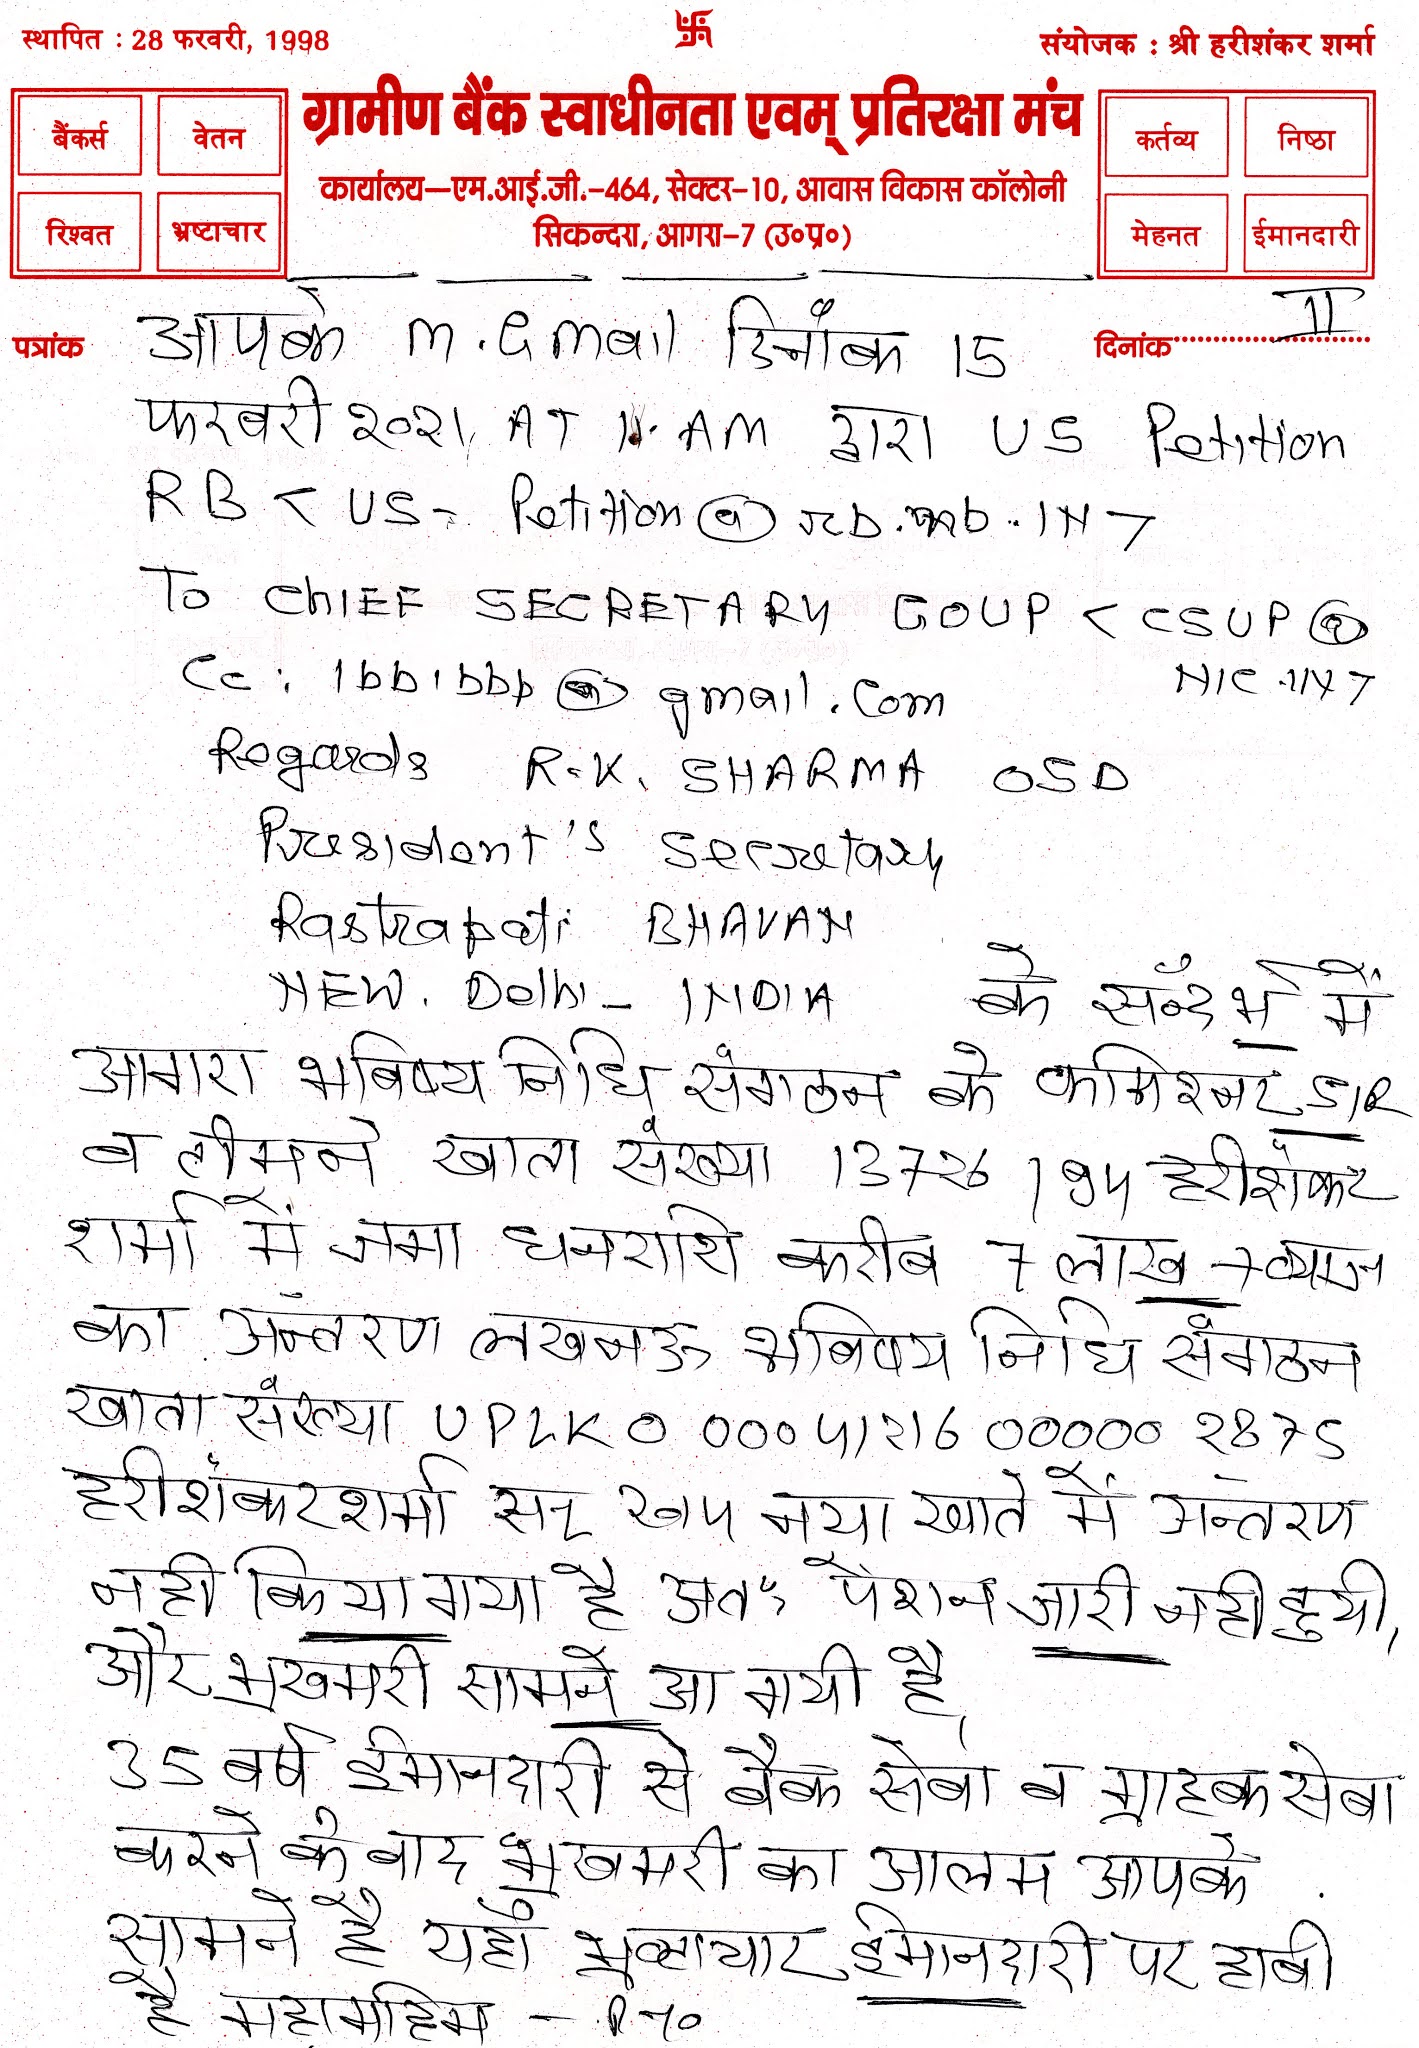 स्थापित : 28 फरवरी, 1998
संयोजक : श्री हरीशंकर शर्मा
बैंकर्स वेतन
रिश्वत भ्रष्टाचार
ग्रामीण बैंक स्वाधीनता एवम् प्रतिरक्षा मंच
कार्यालय–एम.आई.जी.–464, सेक्टर–10, आवास विकास कॉलोनी
सिकन्दरा, आगरा–7 (उ०प्र०)
कर्तव्य निष्ठा
मेहनत ईमानदारी
पत्रांक
दिनांक II
आपके m.Gmail दिनाँक 15
फरबरी २०२१, AT 11. AM द्वारा US Petition
RB < US- Petition@rb.nb.IN >
To ChIEF SECRETARY GOUP < CSUP@
NIC.IN >
Cc: 1bb1bbb@gmail.com
Regards R.K. SHARMA OSD
President's Secretary
Rastrapati BHAVAN
NEW. Delhi - INDIA के सँन्दर्भ में
आगरा भबिष्य निधि संगठन के कमिश्नर SIR
व टीमने खाता संख्या 13726 194 हरीशंकर
शर्मा में जमा धनराशि करीब 7 लाख + व्याज
का अंन्तरण लखनऊ भबिष्य निधि सँगठन
खाता संख्या UPLKO 0004121600000 2875
हरीशंकर शर्मा नया खाते में अन्तरण
नही किया गया है अतः पेंशन जारी नही हुयी,
और भुखमरी सामने आ गयी है,
35 बर्ष ईमानदारी से बैंक सेबा व ग्राहक सेबा
करने के बाद भुखमरी का आलम आपके
सामने है यहाँ भ्रष्टाचार ईमानदारी पर हाबी
है महामहिम - P To